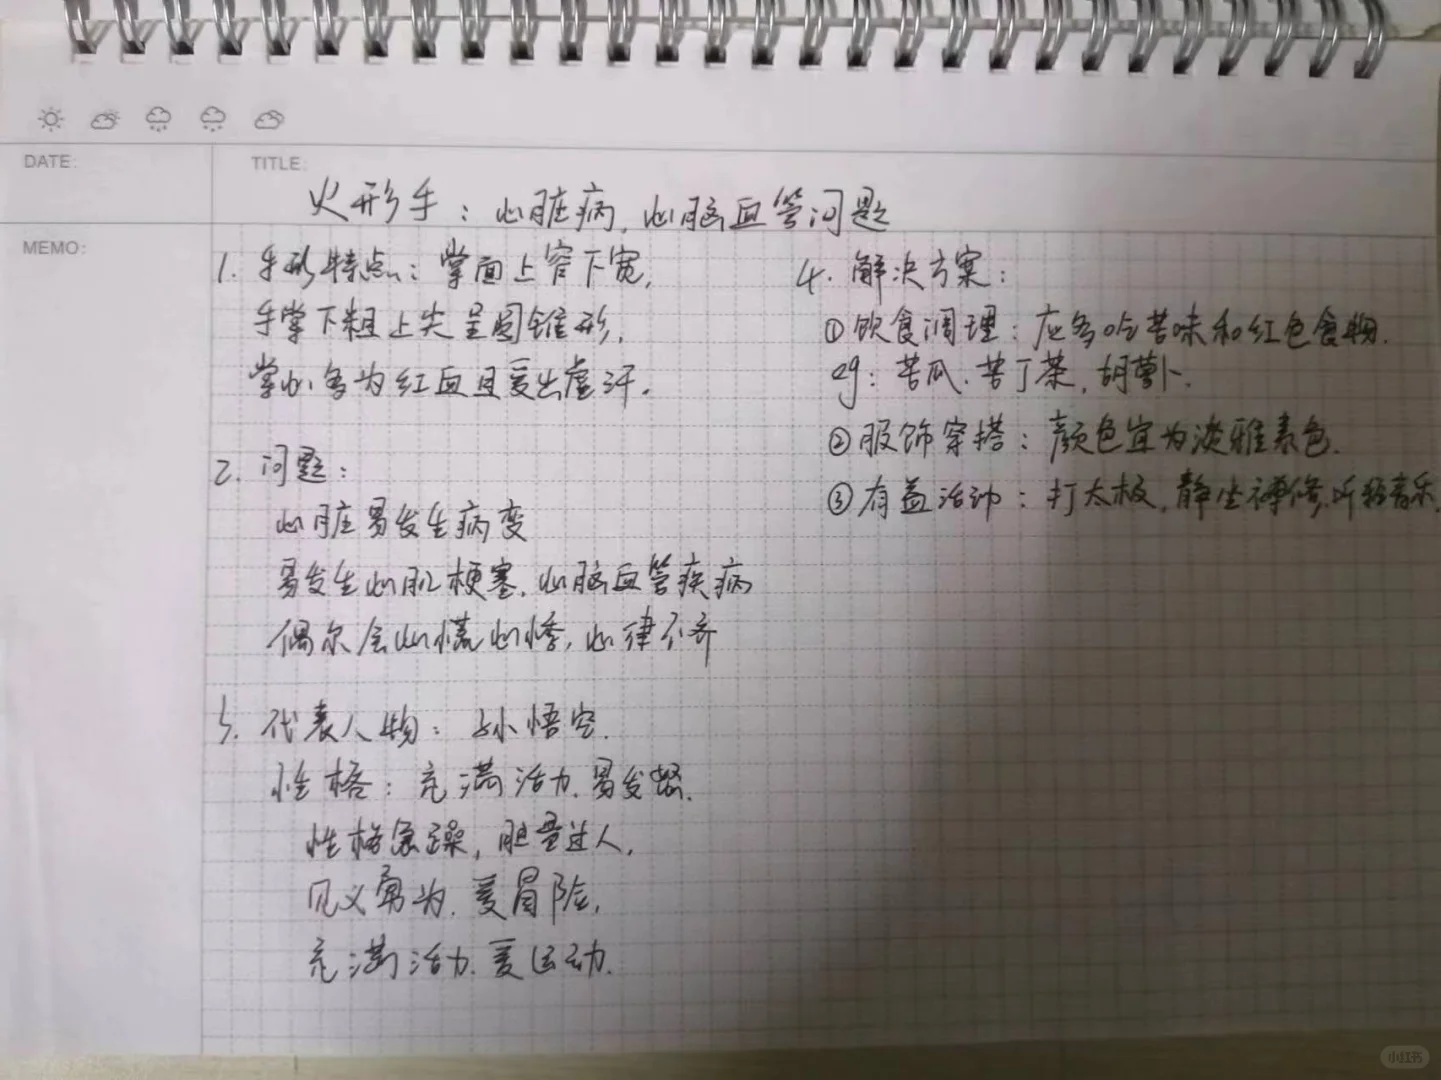 DATE:
TITLE:
火形手：心脏病，心脑血管问题
MEMO:
1. 手形特点：掌面上窄下宽，
手掌下粗上尖呈圆锥形，
掌心多为红血且爱出虚汗.
2. 问题：
心脏易发生病变
易发生心肌梗塞，心脑血管疾病
偶尔会心慌心悸，心律不齐
3. 代表人物：孙悟空.
性格：充满活力、易发怒.
性格急躁，胆量过人，
见义勇为、爱冒险，
充满活力、爱运动.
4. 解决方案：
①饮食调理：应多吃苦味和红色食物.
eg：苦瓜、苦丁茶，胡萝卜.
②服饰穿搭：颜色宜为淡雅素色.
③有益活动：打太极，静坐禅修，听轻音乐.
小红书